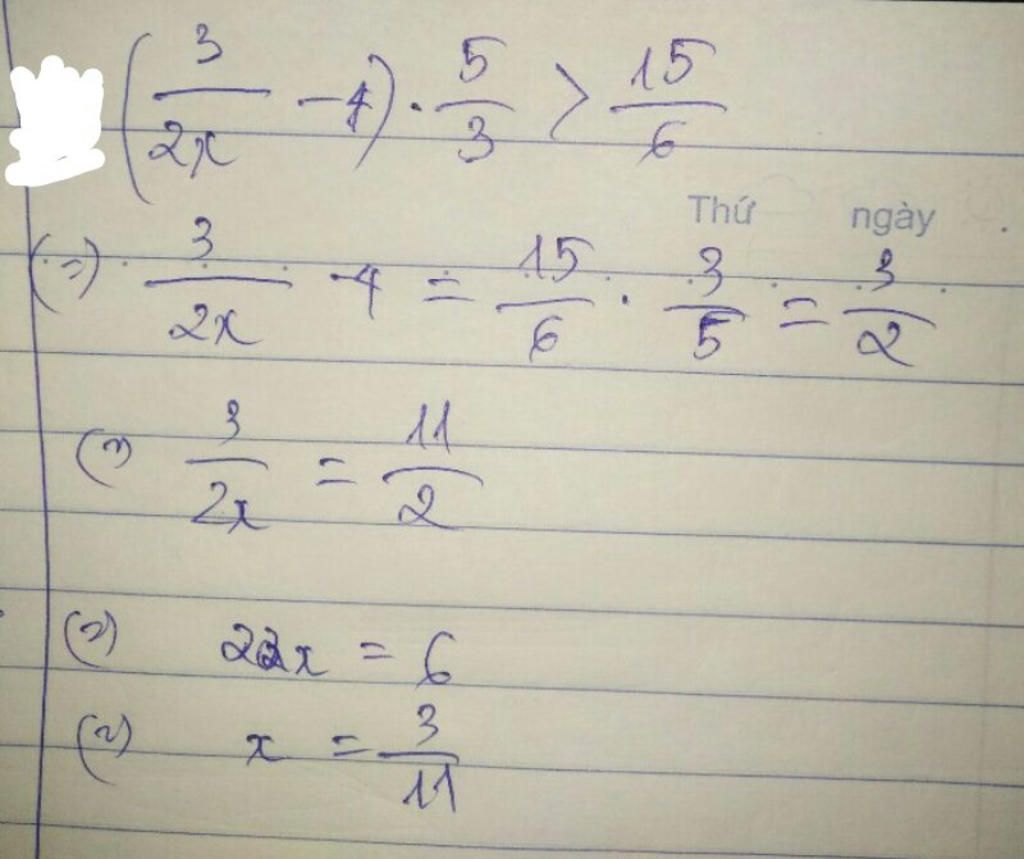 (3/2x - 4) · 5/3 > 15/6
Thứ ngày
(=) 3/2x - 4 = 15/6 · 3/5 = 3/2
3/2x = 11/2
22x = 6
x = 3/11